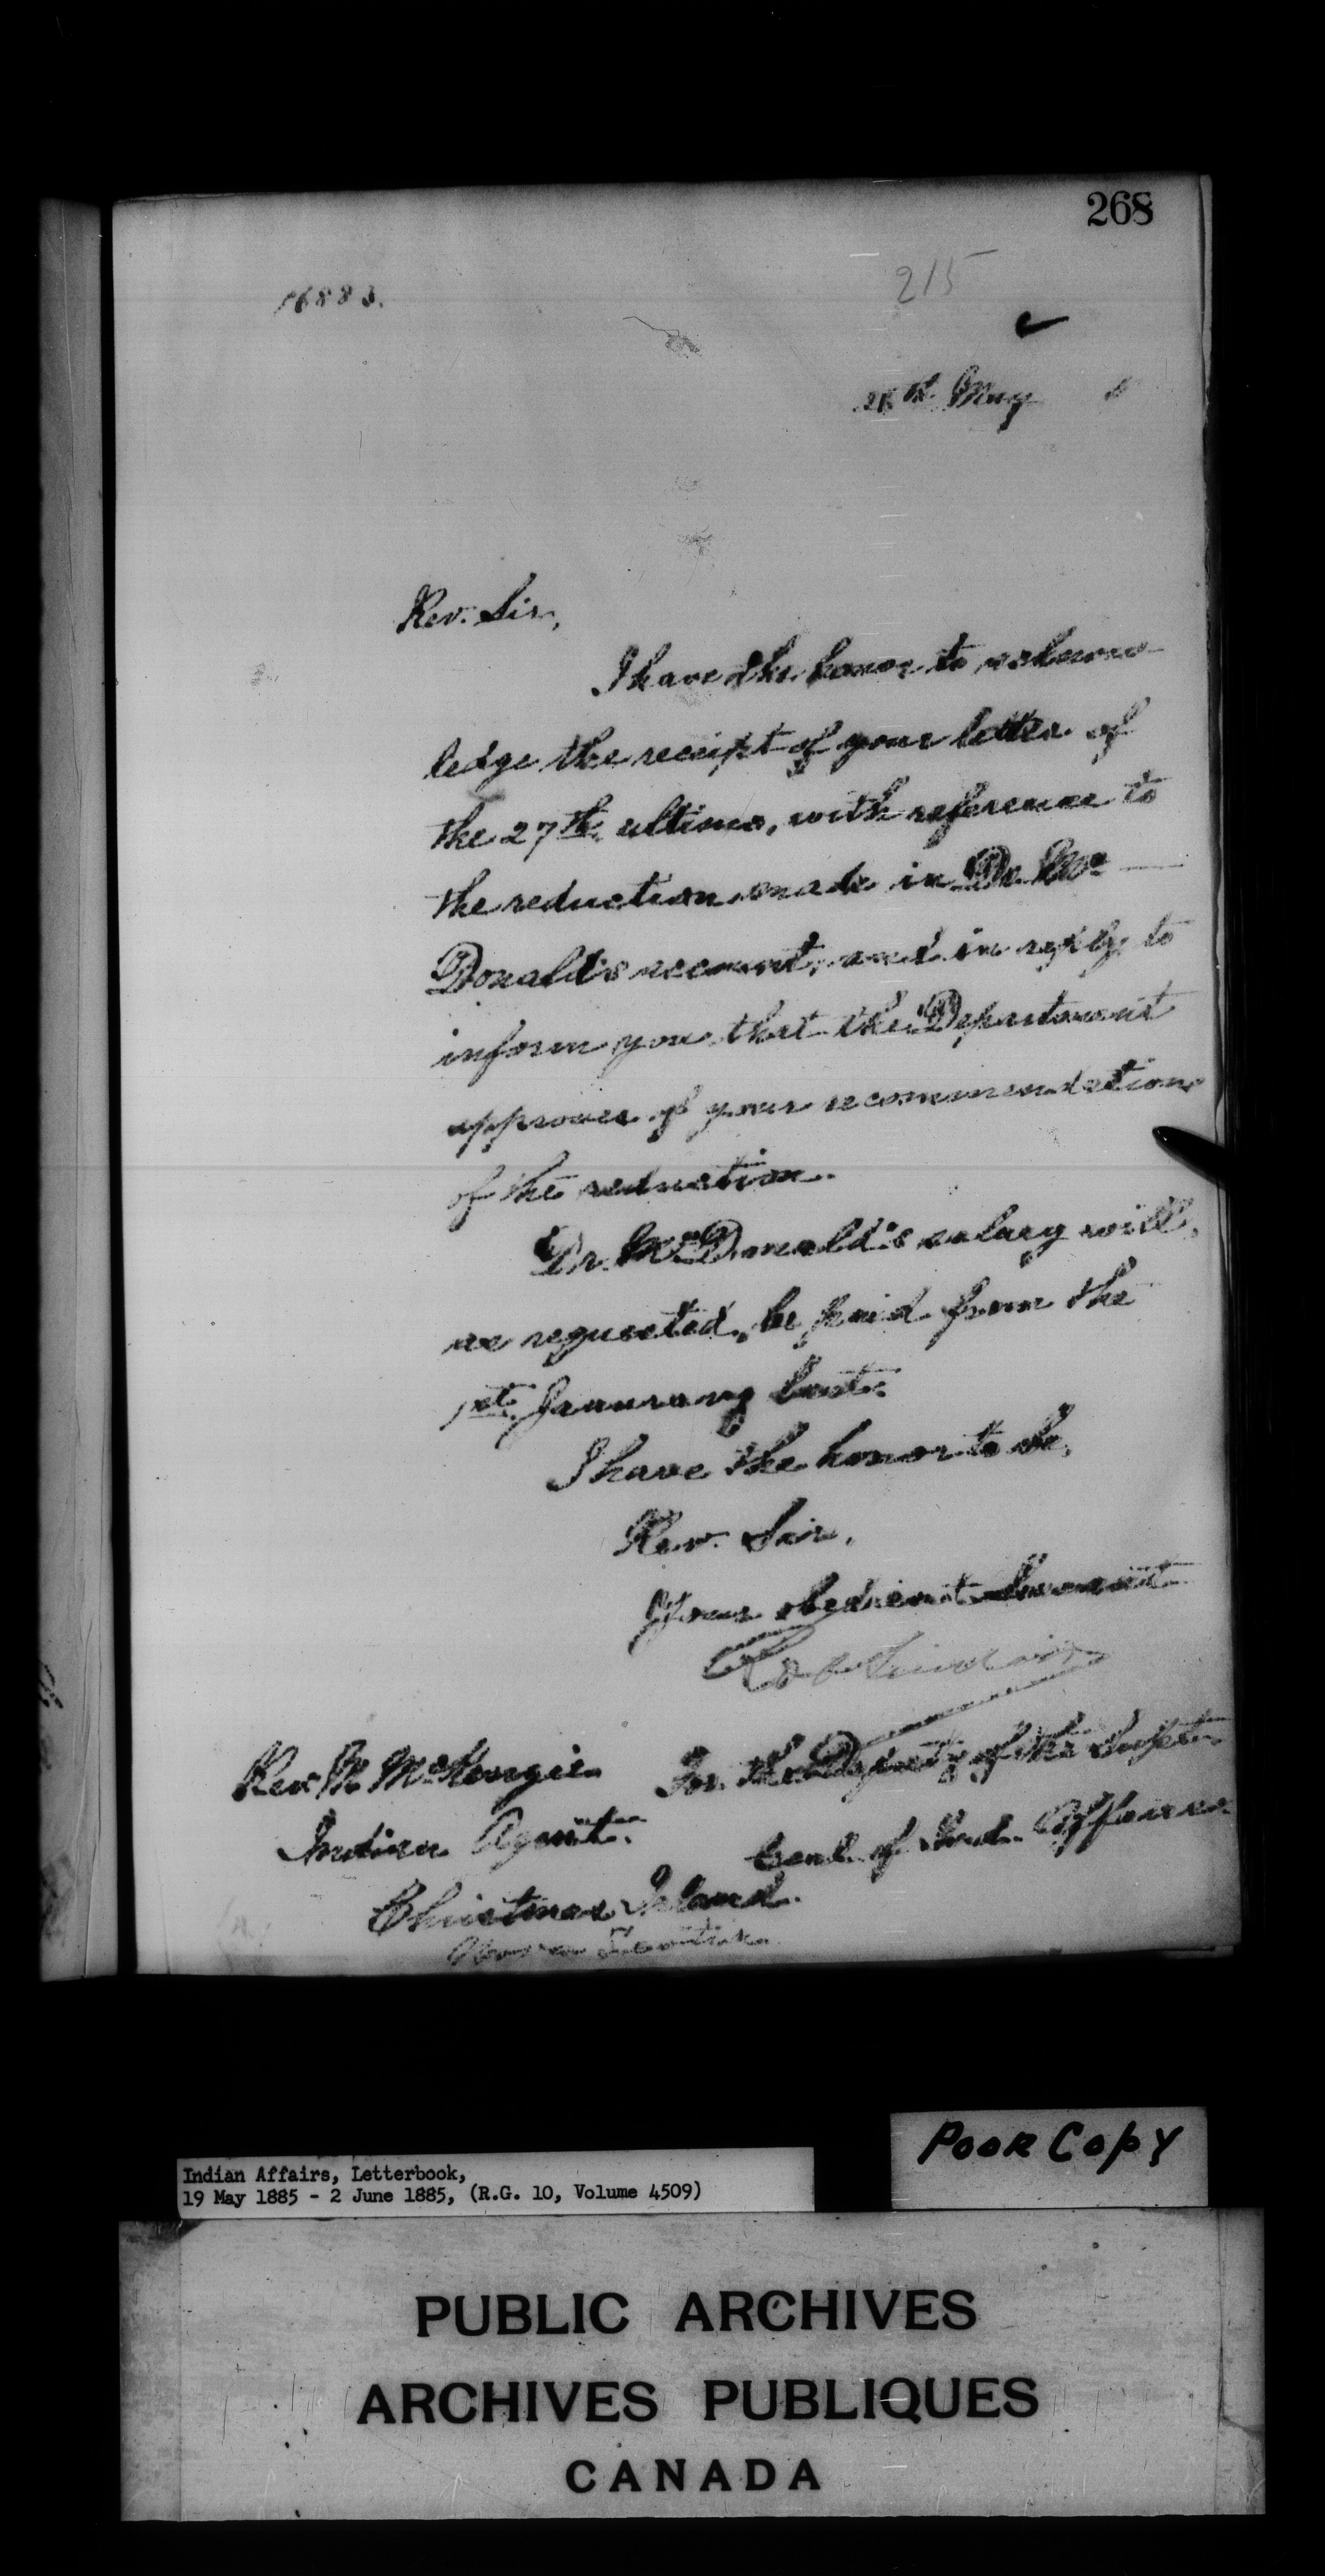 268
215
16883.
May
Rev. Sir,
I have the honor to acknow-
ledge the receipt of your letter of
the 27th ultimo, with reference to
the reduction made in Dr. Mc-
Donald's account, and in reply to
inform you that the Department
approves of your recommendation
of the reduction.
Dr. McDonald's salary will,
as requested, be paid from the
1st January last.
I have the honor to be,
Rev. Sir,
Your obedient servant
Rob Sinclair
For the Deputy of the Supt.
Genl. of Ind. Affairs
Rev. McKenzie
Indian Agent.
Christmas Island.
Nova Scotia.
Poor Copy
Indian Affairs, Letterbook,
19 May 1885 - 2 June 1885, (R.G. 10, Volume 4509)
PUBLIC ARCHIVES
ARCHIVES PUBLIQUES
CANADA